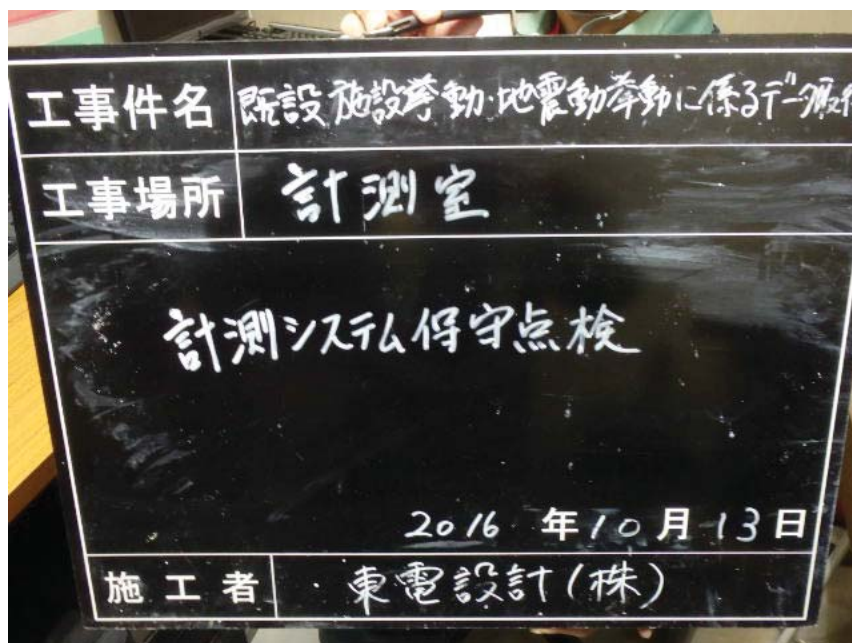 工事件名 既設施設挙動・地震動挙動に係るデータ取得
工事場所 計測室
計測システム保守点検
2016 年 10 月 13 日
施工者 東電設計(株)